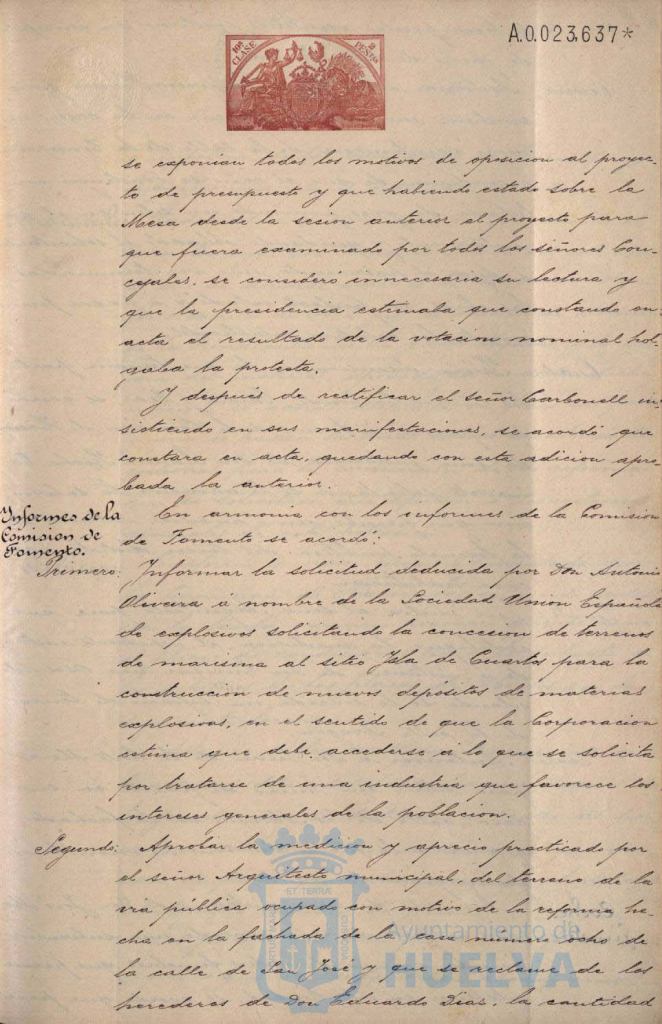 A.0.023,637*
10ª CLASE 2 PESETAS
se exponian todos los motivos de oposicion al proyec-
to de presupuesto y que habiendo estado sobre la
Mesa desde la sesion anterior el proyecto para
que fuera examinado por todos los señores Con-
cejales, se consideró innecesaria su lectura y
que la presidencia estimaba que constando en
acta el resultado de la votacion nominal hol-
gaba la protesta.
Y después de rectificar el señor Carbonell in-
sistiendo en sus manifestaciones, se acordó que
constara en acta, quedando con esta adicion apro-
bada la anterior.
Informes de la
Comision de
Fomento.
En armonia con los informes de la Comision
de Fomento se acordó:
Primero: Informar la solicitud deducida por Don Antonio
Oliveira á nombre de la Sociedad Union Española
de explosivos solicitando la concesion de terrenos
de marisma al sitio Isla de Cuartos para la
construccion de nuevos depósitos de materias
explosivas, en el sentido de que la Corporacion
estima que debe accederse á lo que se solicita
por tratarse de una industria que favorece los
intereses generales de la poblacion.
Segundo: Aprobar la medicion y aprecio practicado por
el señor Arquitecto municipal, del terreno de la
via pública ocupado con motivo de la reforma he-
cha en la fachada de la casa número ocho de
la calle de San José y que se reclame de los
herederos de Don Eduardo Diaz, la cantidad
Ayuntamiento de
HUELVA